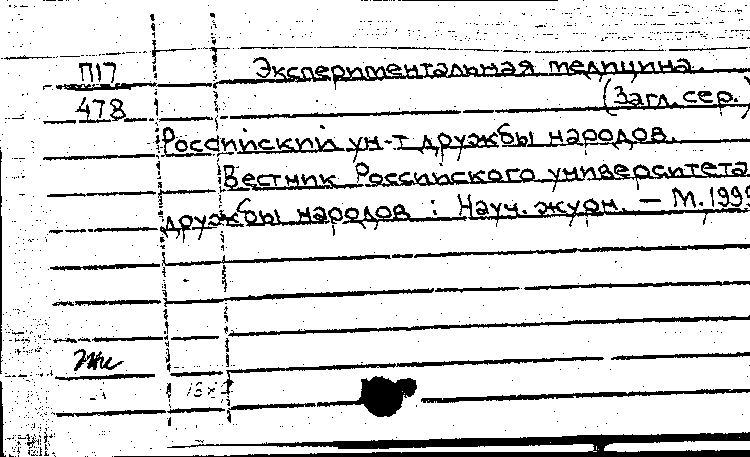 П17 Экспериментальная медицина.
478 (Загл. сер.)
Российский ун-т дружбы народов.
Вестник Российского университета
дружбы народов : Науч. журн. — М. 199